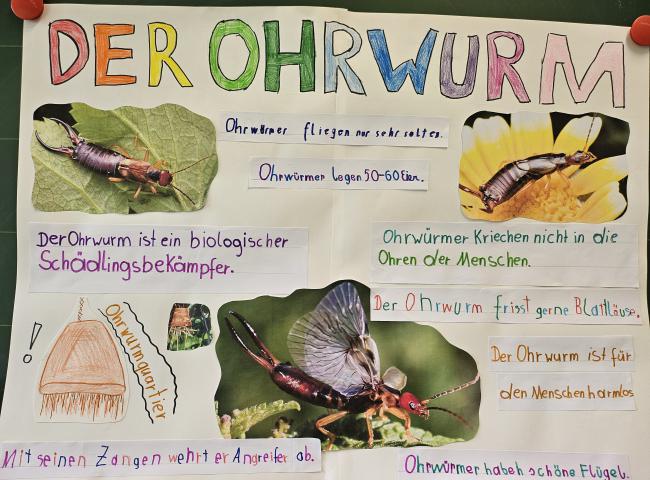 DER OHRWURM
Ohrwürmer fliegen nur sehr selten.
Ohrwürmer legen 50-60 Eier.
Der Ohrwurm ist ein biologischer
Schädlingsbekämpfer.
Ohrwürmer Kriechen nicht in die
Ohren der Menschen.
Der Ohrwurm frisst gerne Blattläuse.
!
Ohrwurmquartier
Der Ohrwurm ist für
den Menschen harmlos
Mit seinen Zangen wehrt er Angreifer ab.
Ohrwürmer haben schöne Flügel.